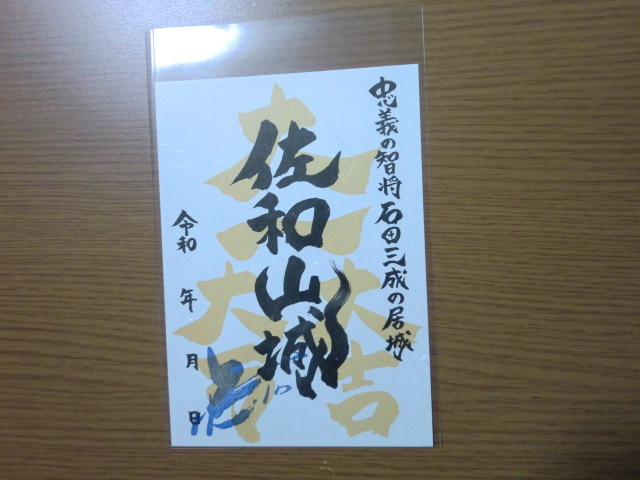 忠義の智将 石田三成の居城
佐和山城
大一大万大吉
令和 年 月 日